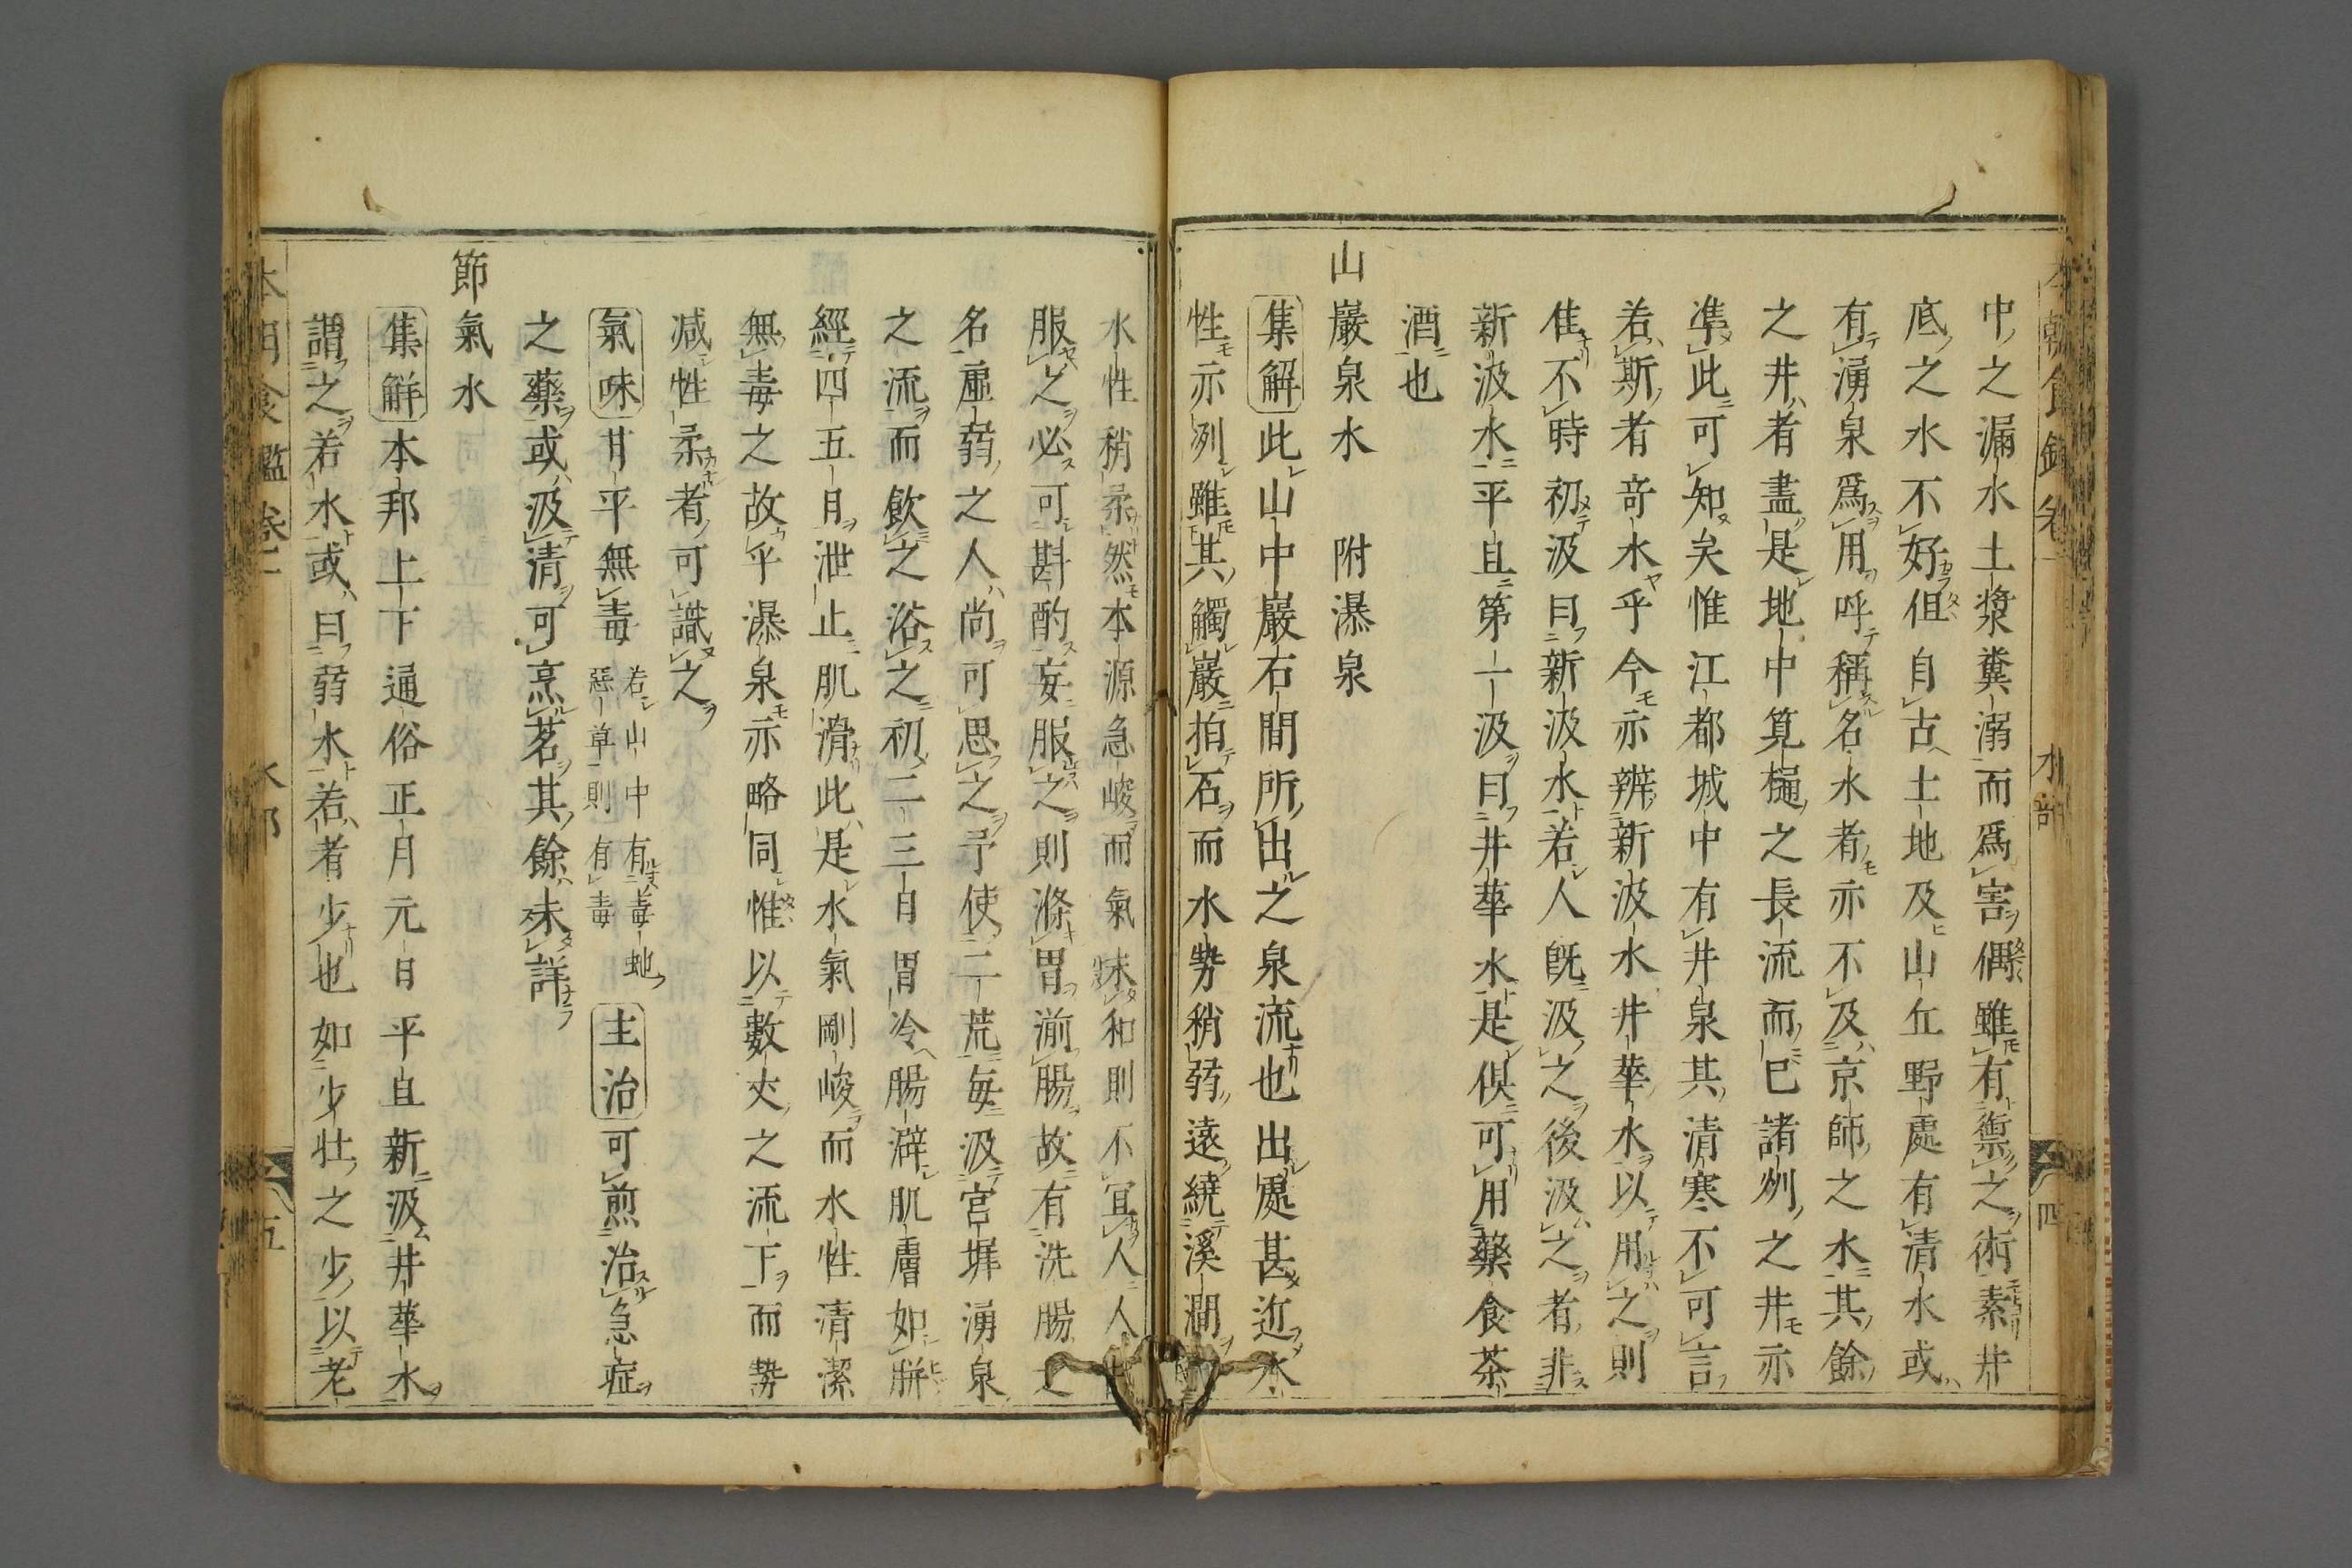 中之漏水土漿糞溺而爲害偶雖有禦之術素井
底之水不好但自古土地及山丘野處有清水或
有湧泉爲用呼稱名水者亦不及京師之水其餘
之井者盡是地中筧樋之長流而已諸州之井亦
準此可知矣惟江都城中有井泉其清寒不可言
若斯者奇水乎今亦辨新汲水井華水以用之則
隹不時初汲曰新汲水若人既汲之後汲之者非
新汲水平旦第一汲曰井華水是俱可用藥食茶
酒也
山巖泉水 附瀑泉
集解此山中巖石間所出之泉流也出處甚近水
性亦冽雖其觸巖拍石而水勢稍弱遠繞溪澗
水性稍柔然本源急峻而氣味和則不宜人人
服之必可斟酌妄服之則滌胃湔腸故有洗腸之
名虛弱之人尚可思之予使二荒每汲宮墀湧泉
之流而飲之浴之初二三日胃冷腸澼肌膚如胼
經四五月泄止肌滑此是水氣剛峻而水性清潔
無毒之故乎瀑泉亦略同惟以數丈之流下而勢
减性柔者可識之
氣味甘平無毒 若山中有毒蛇惡草則有毒 主治可煎治急症
之藥或汲清可烹茗其餘未詳
節氣水
集解本邦上下通俗正月元日平旦新汲井華水
謂之若水或曰弱水若者少也如少壯之少以老
本朝食鑑卷一 水部 四
本朝食鑑卷一 水部 五